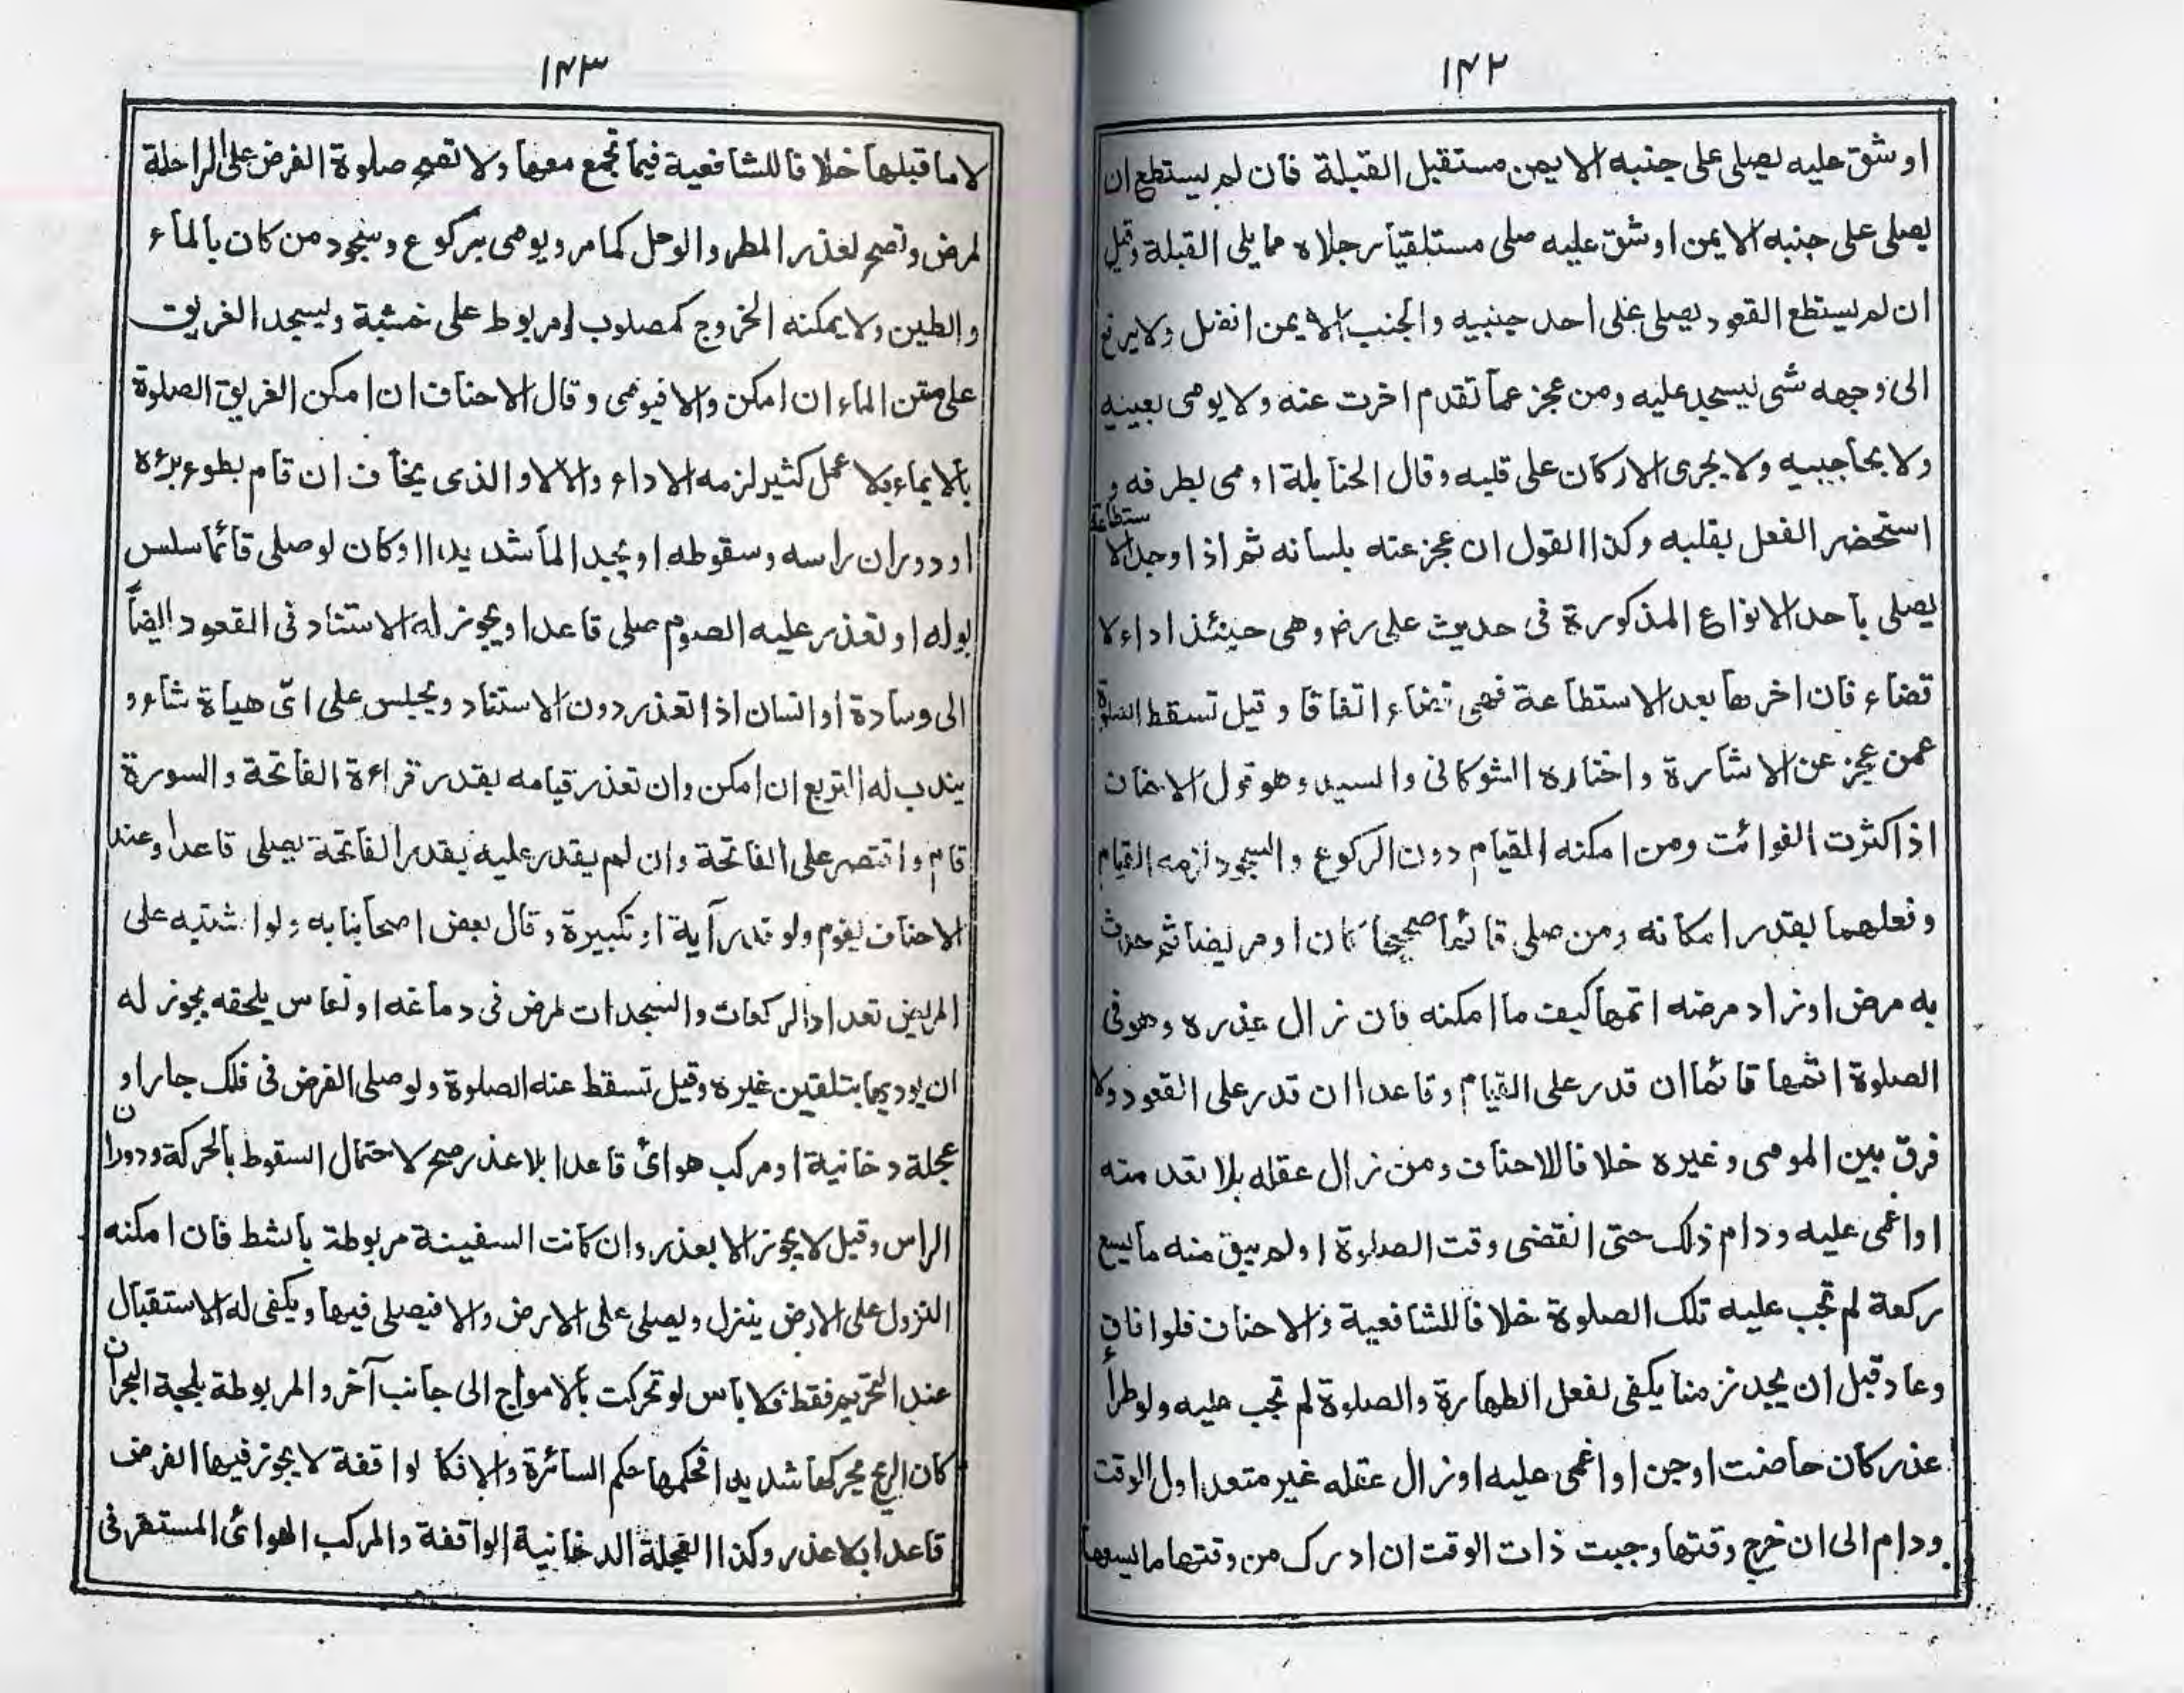 ۱۴۲
او شق عليه يصلى على جنبه الايمن مستقبل القبلة فان لم يستطع ان
يصلى على جنبه الايمن او شق عليه صلى مستلقيا رجلاه مما يلى القبلة وقيل
ان لم يستطع القعود يصلى على احد جنبيه والجنب الايمن افضل ولا يرفع
الى وجهه شى ليسجد عليه ومن عجز عما تقدم اخرت عنه ولا يومى بعينيه
ولا بحاجبيه ولا يجرى الاركان على قلبه وقال الحنابلة اومى بطرفه و
استحضر الفعل بقلبه وكذا القول ان عجز عنه بلسانه ثم اذا وجد الاستطاعة
يصلى باحد الانواع المذكورة فى حديث على رض وهى حينئذ اداء لا
قضاء فان اخرها بعد الاستطاعة فهى قضاء اتفاقا وقيل تسقط الصلوة
عمن عجز عن الاشارة واختاره الشوكانى والسيد وهو قول الاحناف
اذا كثرت الفوائت ومن امكنه القيام دون الركوع والسجود لزمه القيام
وفعلهما بقدر امكانه ومن صلى قائما صحيحا كان او مريضا ثم حدث
به مرض او زاد مرضه اتمها كيف ما امكنه فان زال عذره وهو فى
الصلوة اتمها قائما ان قدر على القيام وقاعدا ان قدر على القعود ولا
فرق بين المومى وغيره خلافا للاحناف ومن زال عقله بلا تعد منه
او اغمى عليه ودام ذلك حتى انقضى وقت الصلوة او لم يبق منه ما يسع
ركعة لم تجب عليه تلك الصلوة خلافا للشافعية والاحناف فلو افاق
وعاد قبل ان يجد زمنا يكفى لفعل الطهارة والصلوة لم تجب عليه ولو طرأ
عذر كان حاضت او جن او اغمى عليه او زال عقله غير متعد اول الوقت
ودام الى ان خرج وقتها وجبت ذات الوقت ان ادرك من وقتها ما يسعها
۱۴۳
لا ما قبلها خلافا للشافعية فيما تجمع معها ولا تصح صلوة الفرض على الراحلة
لمرض وتصح لعذر المطر والوحل كما مر ويومى بركوع وسجود من كان بالماء
والطين ولا يمكنه الخروج كمصلوب او مربوط على خشبة ويسجد الغريق
على متن الماء ان امكن والا فيومى وقال الاحناف ان امكن الغريق الصلوة
بالايماء بلا عمل كثير لزمه الاداء والا لا والذى يخاف ان قام بطوء برئه
او دوران راسه وسقوطه او يجد الما شديدا او كان لو صلى قائما سلس
بوله او تعذر عليه الصوم صلى قاعدا ويجوز له الاستناد فى القعود ايضا
الى وسادة او انسان اذا تعذر دون الاستناد ويجلس على اىّ هياة شاء و
يندب له التربع ان امكن وان تعذر قيامه بقدر قراءة الفاتحة والسورة
قام واقتصر على الفاتحة وان لم يقدر عليه بقدر الفاتحة يصلى قاعدا وعند
الاحناف يقوم ولو قدر آية او تكبيرة وقال بعض اصحابنا به ولو اشتبه على
المريض تعداد الركعات والسجدات لمرض فى دماغه او نعاس يلحقه يجوز له
ان يوديها بتلقين غيره وقيل تسقط عنه الصلوة ولو صلى الفرض فى فلك جار او
عجلة دخانية او مركب هوائى قاعدا بلا عذر صح لاحتمال السقوط بالحركة ودوران
الراس وقيل لا يجوز الا بعذر وان كانت السفينة مربوطة بالشط فان امكنه
النزول على الارض ينزل ويصلى على الارض والا فيصلى فيها ويكفى له الاستقبال
عند التحريم فقط فلا باس لو تحركت بالامواج الى جانب آخر والمربوطة بلجة البحر ان
كان الريح يحركها شديدا فحكمها حكم السائرة والا فكالواقفة لا يجوز فيها الفرض
قاعدا بلا عذر وكذا العجلة الدخانية الواقفة والمركب الهوائى المستقر فى